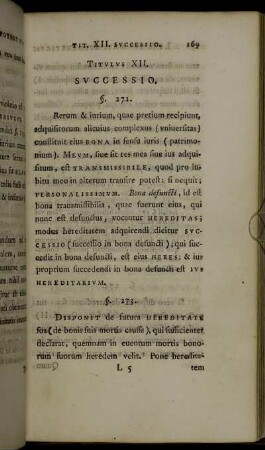 TIT. XII. SVCCESSIO. 169
TITVLVS XII.
SVCCESSIO.
§. 272.
Rerum & iurium, quae pretium recipiunt,
adquisitorum alicuius complexus (vniuersitas)
constituit eius BONA in sensu iuris (patrimo-
nium). MEVM, siue sit res mea siue ius adqui-
situm, est TRANSMISSIBILE, quod pro lu-
bitu meo in alterum transire potest; si nequit;
PERSONALISSIMVM. Bona defuncti, id est
bona transmissibilia, quae fuerunt eius, qui
nunc est defunctus, vocantur HEREDITAS;
modus hereditatem adquirendi dicitur SVC-
CESSIO (successio in bona defuncti); qui suc-
cedit in bona defuncti, est eius HERES; & ius
proprium succedendi in bona defuncti est IVS
HEREDITARIVM.
§. 273.
DISPONIT de futura HEREDITATE
sua (de bonis suis mortis caussa), qui sufficienter
declarat, quemnam in euentum mortis bono-
rum suorum heredem velit. Pone heredita-
L 5 tem